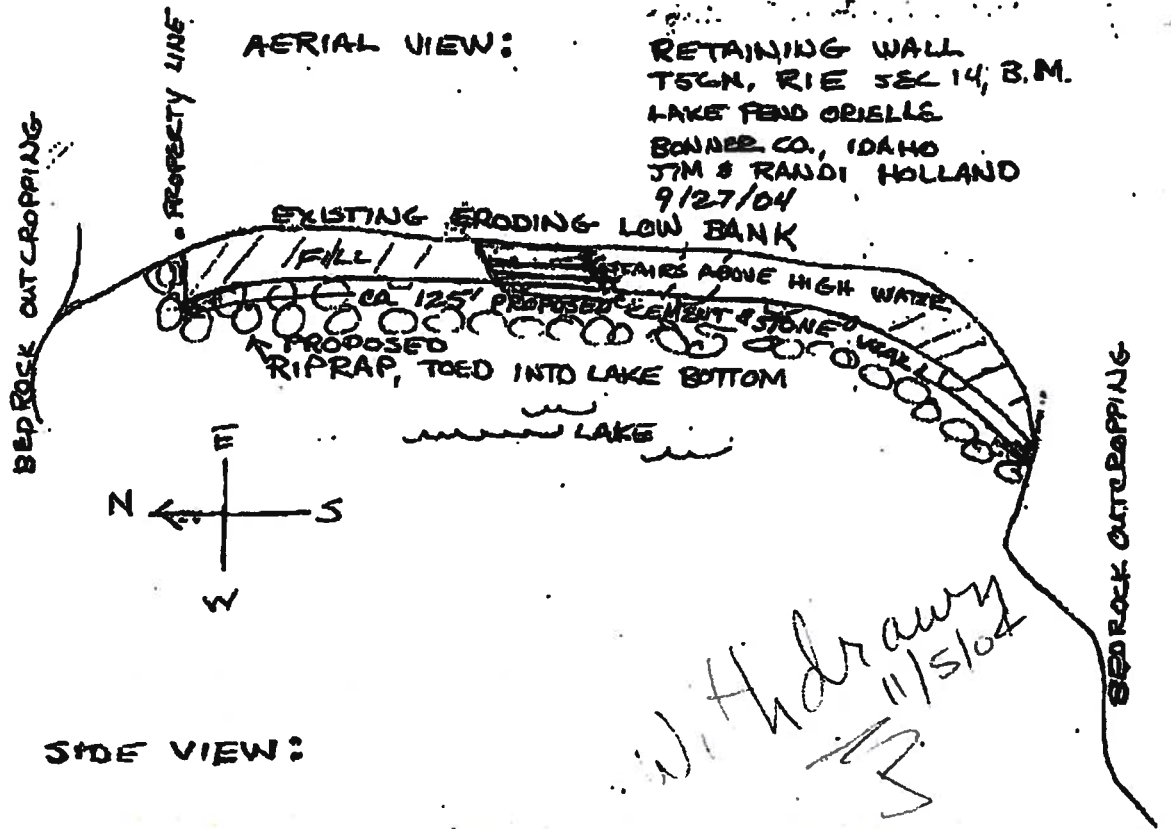 AERIAL VIEW:
RETAINING WALL
T56N, R1E SEC 14, B.M.
LAKE PEND ORIELLE
BONNER CO., IDAHO
JIM & RANDI HOLLAND
9/27/04
PROPERTY LINE
BEDROCK OUTCROPPING
EXISTING ERODING LOW BANK
FILL
STAIRS ABOVE HIGH WATER
CA 125' PROPOSED CEMENT & STONE WALL
PROPOSED
RIPRAP, TOED INTO LAKE BOTTOM
LAKE
E
N
S
W
BEDROCK OUTCROPPING
Withdrawn
11/5/04
SIDE VIEW: